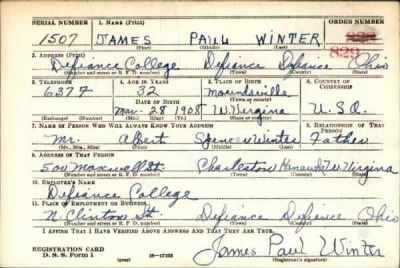 SERIAL NUMBER 1. NAME (Print) ORDER NUMBER
1507 JAMES PAUL WINTER
(First) (Middle) (Last) 829
2. ADDRESS (Print)
Defiance College Defiance Defiance Ohio
(Number and street or R. F. D. number) (Town) (County) (State)
3. TELEPHONE 4. AGE IN YEARS 5. PLACE OF BIRTH 6. COUNTRY OF CITIZENSHIP
6377 32 Moundsville
DATE OF BIRTH (Town or county)
Mar. 28 1908 W. Virginia U.S.A.
(Mo.) (Day) (Yr.) (State or country)
7. NAME OF PERSON WHO WILL ALWAYS KNOW YOUR ADDRESS 8. RELATIONSHIP OF THAT PERSON
Mr. Albert Spencer Winter Father
(Mr., Mrs., Miss) (First) (Middle) (Last)
9. ADDRESS OF THAT PERSON
Maxwell St. Charleston Kanawha W. Virginia
(Number and street or R. F. D. number) (Town) (County) (State)
10. EMPLOYER'S NAME
Defiance College
11. PLACE OF EMPLOYMENT OR BUSINESS
N. Clinton St. Defiance Defiance Ohio
(Number and street or R. F. D. number) (Town) (County) (State)
I AFFIRM THAT I HAVE VERIFIED ABOVE ANSWERS AND THAT THEY ARE TRUE.
REGISTRATION CARD James Paul Winter
D. S. S. FORM 1 (over) 16-17105 (Registrant's signature)